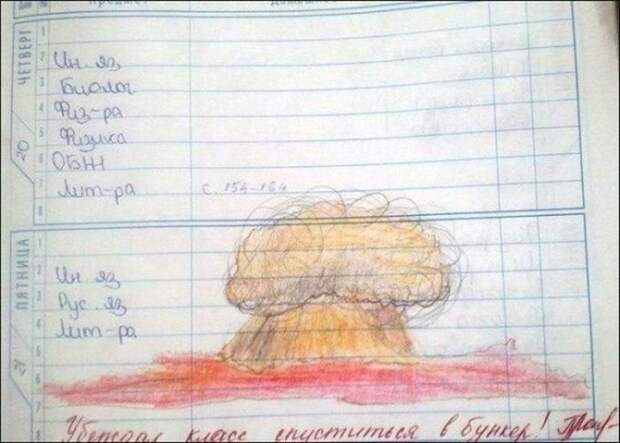 ЧЕТВЕРГ
20
1
2 Ин. яз
3 Биолог
4 Физ-ра
5 Физика
6 ОБЖ
7 Лит-ра с. 154-164
8
ПЯТНИЦА
21
1
2 Ин. яз
3 Рус. яз
4 Лит-ра
5
6
7
Убеждал класс спуститься в бункер!